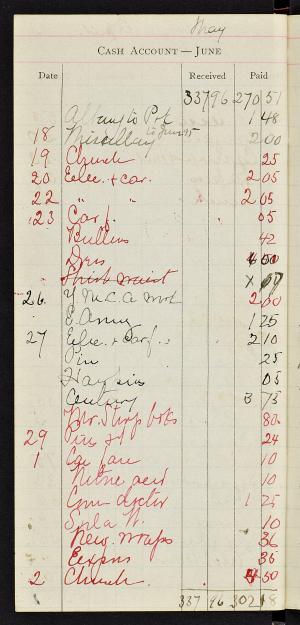 May
CASH ACCOUNT — JUNE
Date Received Paid
337 96 270 51
Albany to Pok 1 48
18 Miscellany to June 15 2 00
19 Church 25
20 Elec. + car. 2 05
22 " " 2 05
23 Carf. 05
Bullens 42
Dres 50
Shirt waist
26 Y.M.C.A. 2 00
E. Army 1 25
27 Elec. + Carf. 2 10
Pin 25
05
Century 3 75
Mr. 80
29 Pins 24
1 Car fare 10
Nitric acid 10
Com doctor 1 25
Soda W. 10
News. wraps 36
Expens 35
2 Church 50
337 96 302 18